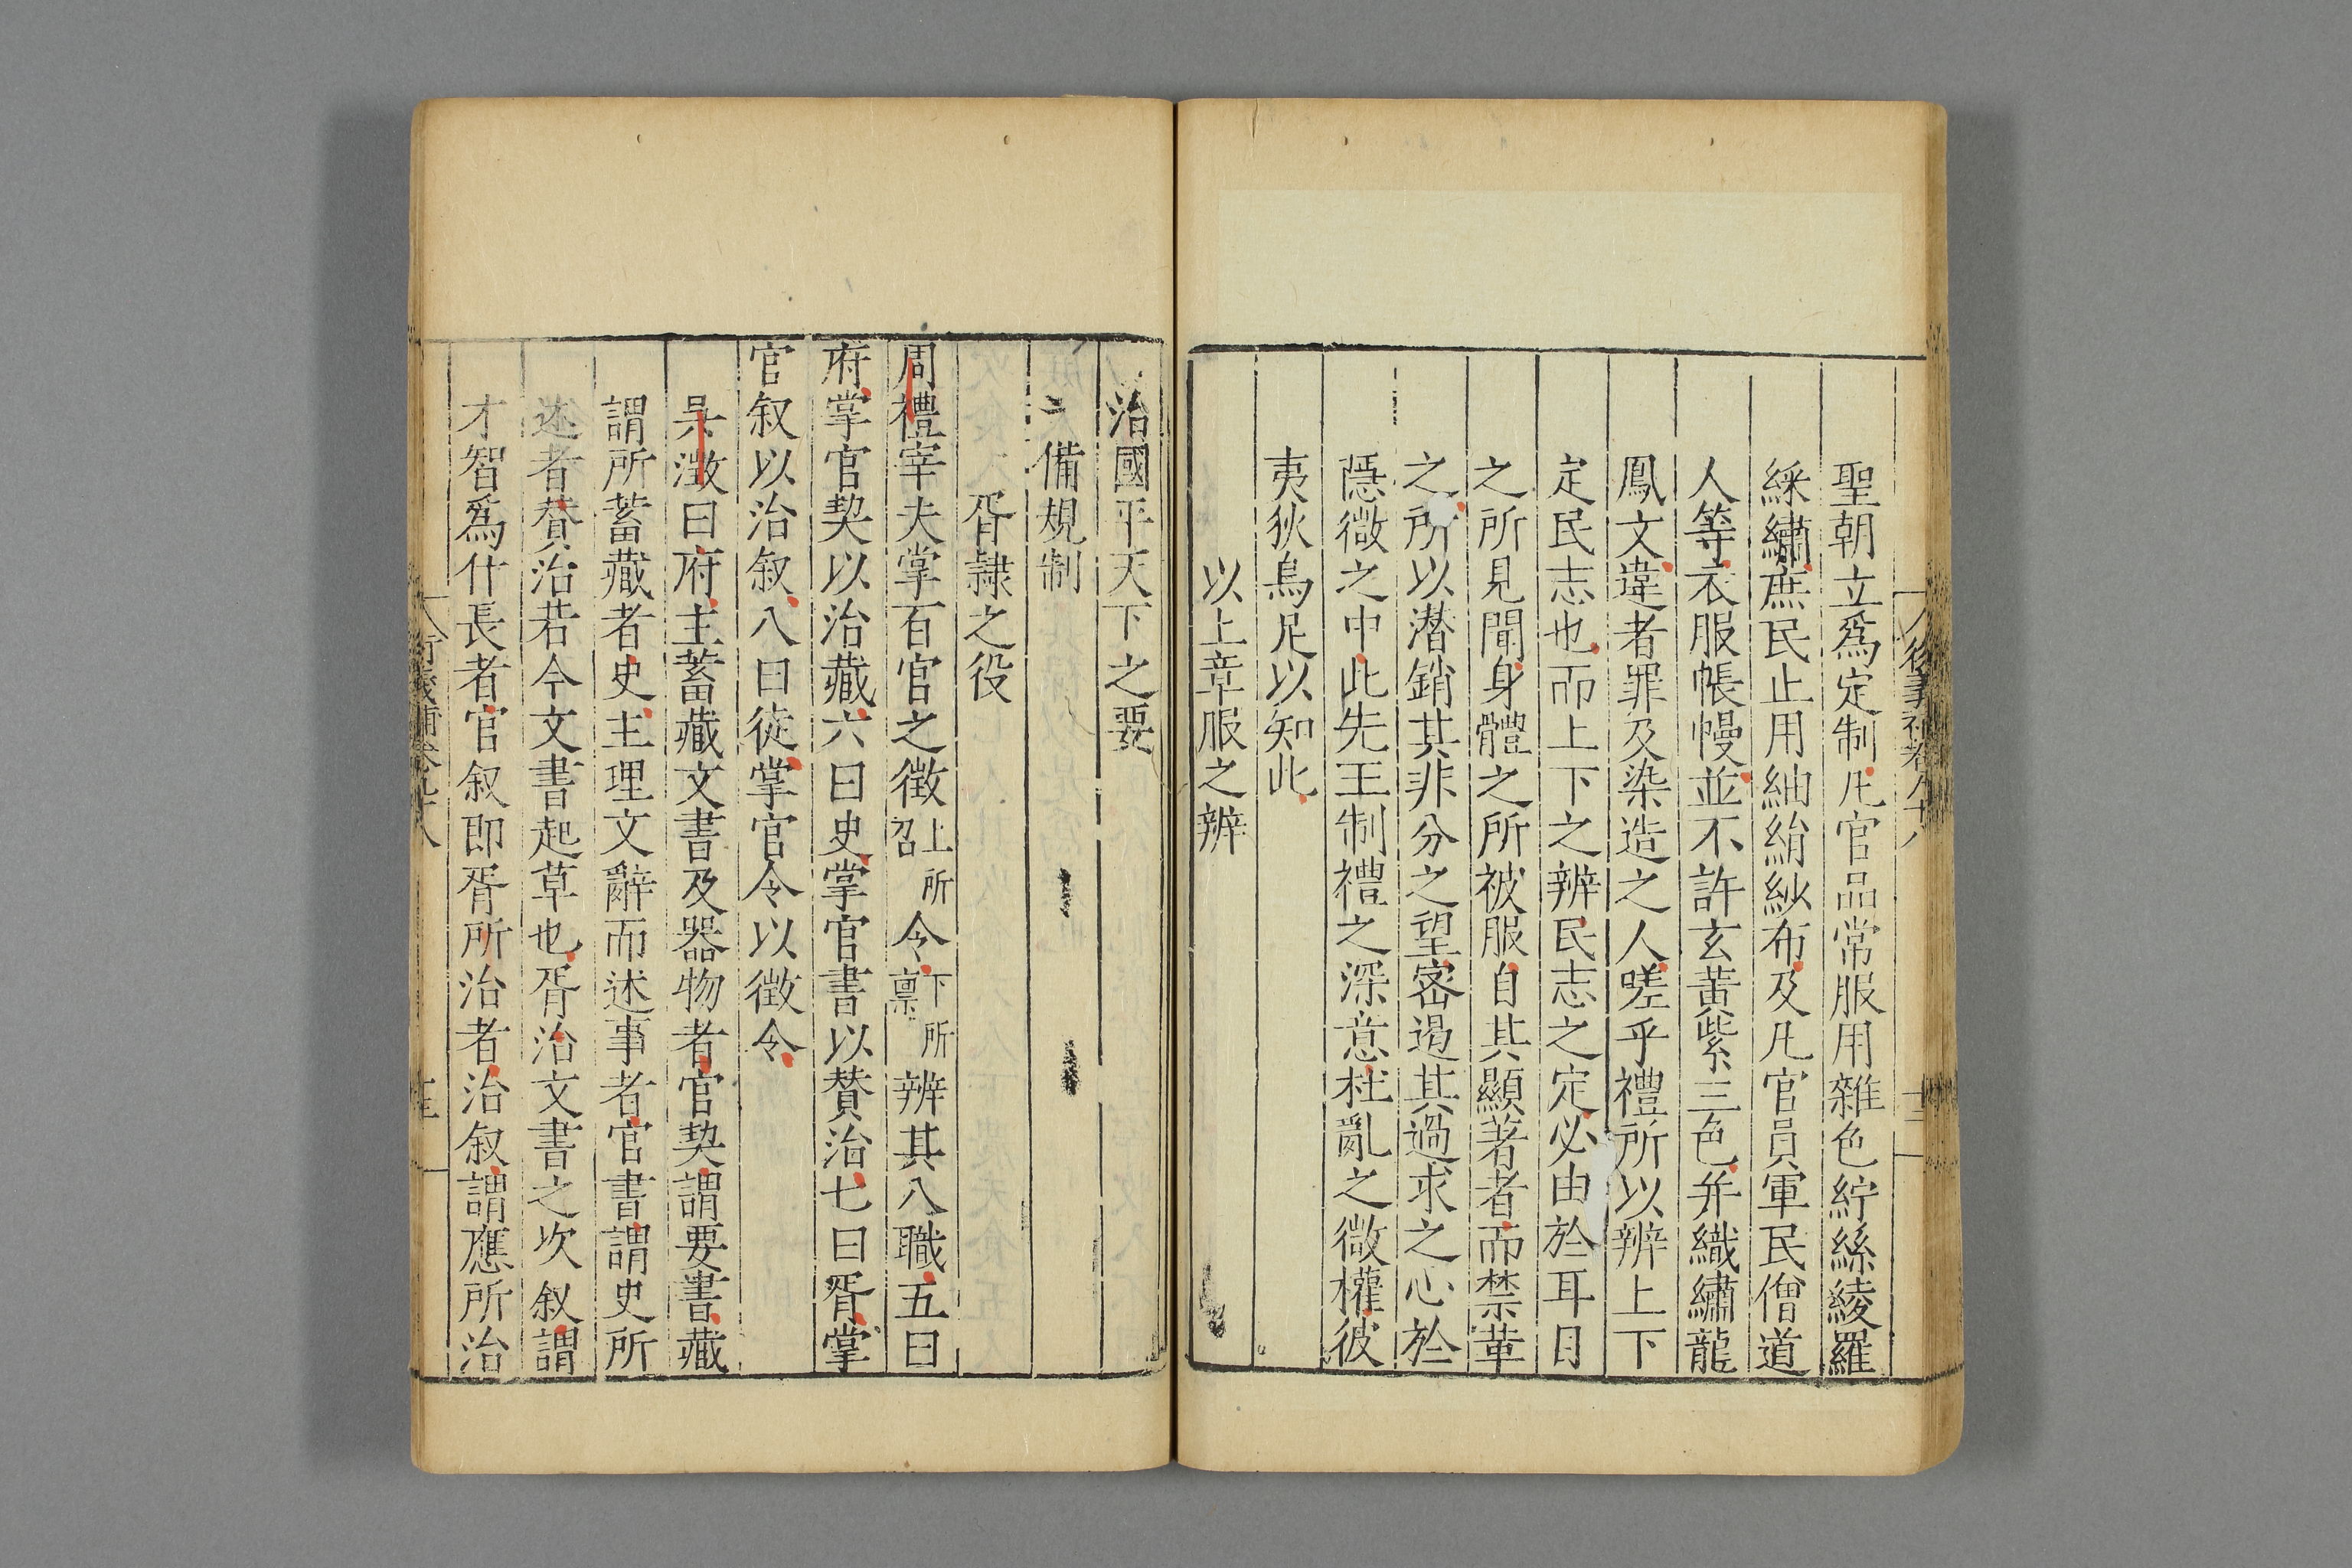 聖朝立爲定制凡官品常服用雜色紵絲綾羅
綵繡庶民止用紬絹紗布及凡官員軍民僧道
人等衣服帳幔並不許玄黃紫三色并織繡龍
鳳文違者罪及染造之人嗟乎禮所以辨上下
定民志也而上下之辨民志之定必由於耳目
之所見聞身體之所被服自其顯著者而禁革
之所以潛銷其非分之望密遏其過求之心於
隱微之中此先王制禮之深意杜亂之微權彼
夷狄烏足以知此
以上章服之辨
治國平天下之要
備規制
胥隷之役
周禮宰夫掌百官之徵上所召令下所稟辨其八職五曰
府掌官契以治藏六曰史掌官書以賛治七曰胥掌
官叙以治叙八曰徒掌官令以徵令
吳澂曰府主蓄藏文書及器物者官契謂要書藏
謂所蓄藏者史主理文辭而述事者官書謂史所
述者賛治若今文書起草也胥治文書之次叙謂
才智爲什長者官叙即胥所治者治叙謂應所治